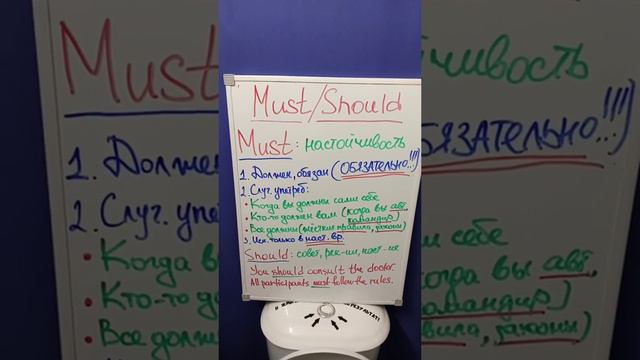 Must/Should
Must: настойчивость
1. Должен, обязан (ОБЯЗАТЕЛЬНО!!!)
2. Случ. употреб:
• Когда вы должны сами себе
• Кто-то должен вам (когда вы авт, командир)
• Все должны (жёсткие правила, законы)
3. Исп. только в наст. вр.
Should: совет, рек-ии, наст-ия
You should consult the doctor.
All participants must follow the rules.